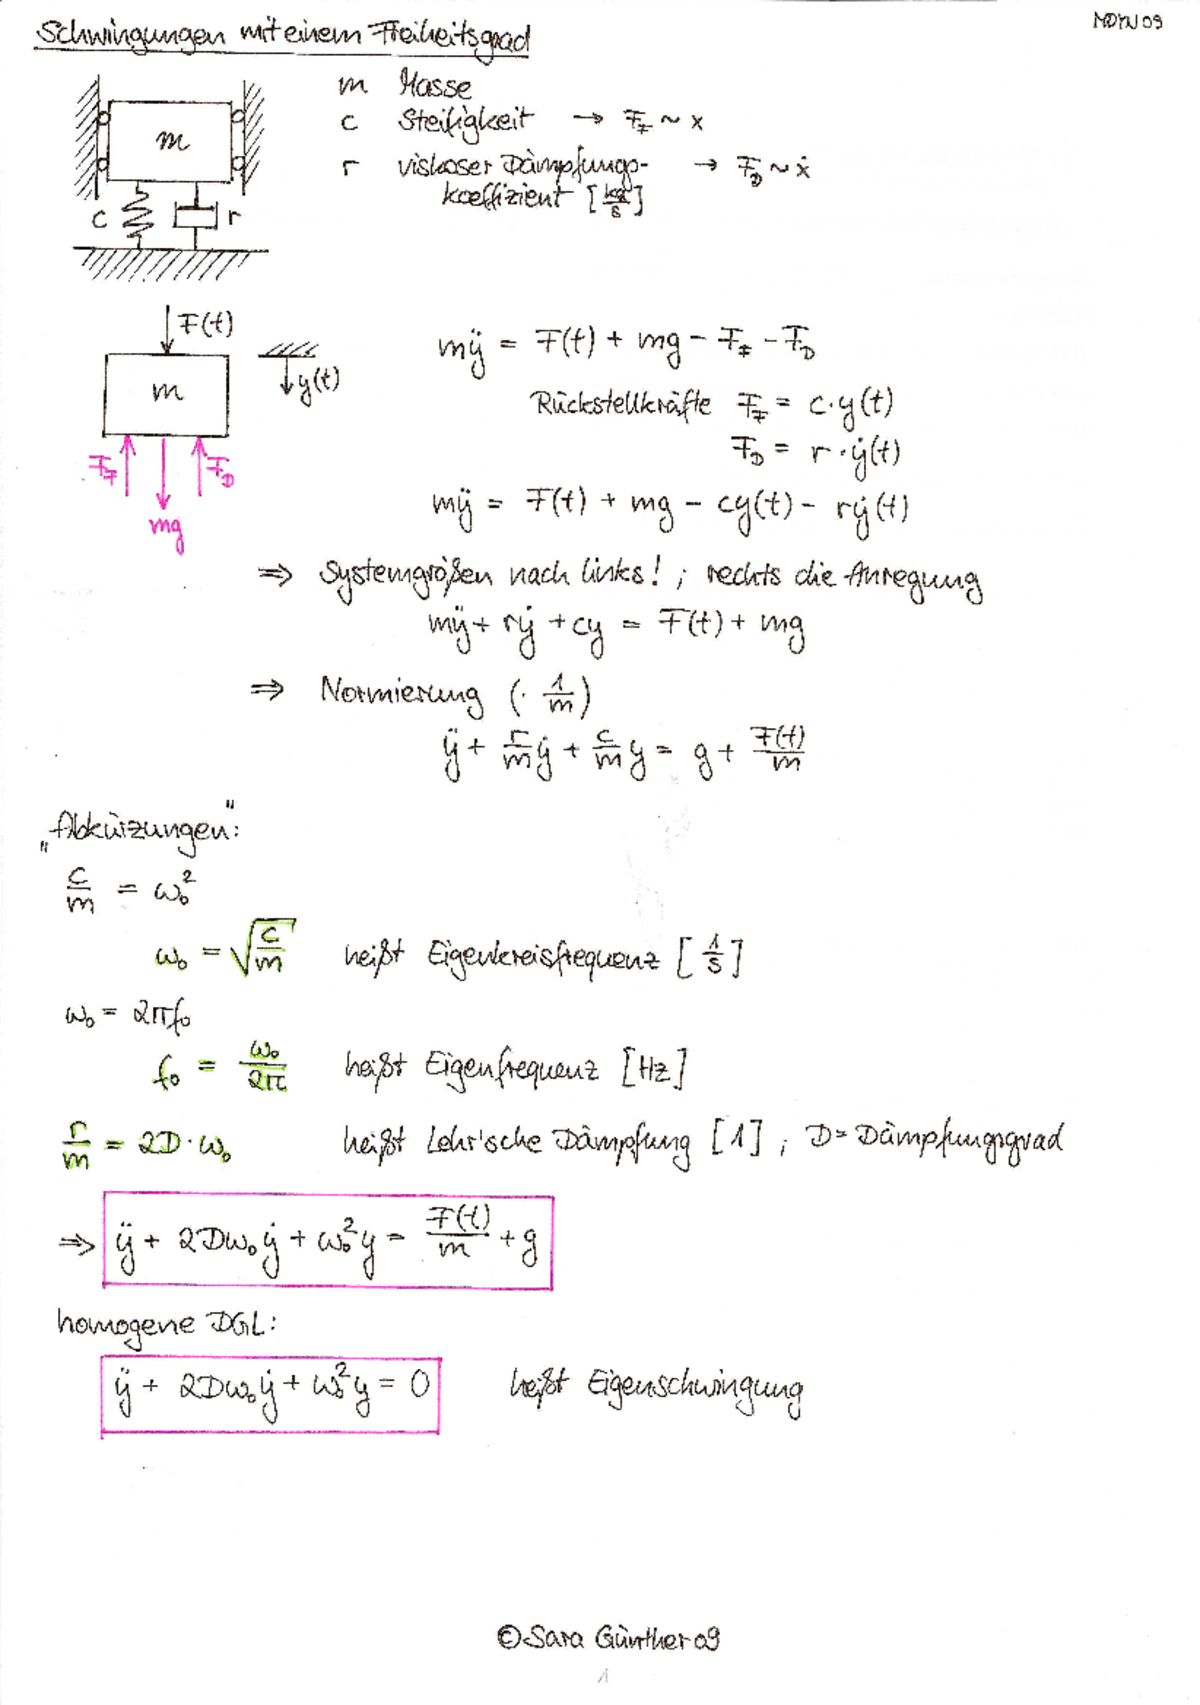 Schwingungen mit einem Freiheitsgrad
MDYN 09
m
c r
m Masse
c Steifigkeit → F_F ~ x
r viskoser Dämpfungs- → F_D ~ ẋ
koeffizient [kg/s]
F(t)
m
y(t)
F_F F_D
mg
mÿ = F(t) + mg - F_F - F_D
Rückstellkräfte F_F = c·y(t)
F_D = r·ẏ(t)
mÿ = F(t) + mg - cy(t) - rẏ(t)
⇒ Systemgrößen nach links! ; rechts die Anregung
mÿ + rẏ + cy = F(t) + mg
⇒ Normierung (· 1/m)
ÿ + r/m ẏ + c/m y = g + F(t)/m
„Abkürzungen":
c/m = ω₀²
ω₀ = √(c/m) heißt Eigenkreisfrequenz [1/s]
ω₀ = 2πf₀
f₀ = ω₀/2π heißt Eigenfrequenz [Hz]
r/m = 2D·ω₀ heißt Lehr'sche Dämpfung [1] ; D = Dämpfungsgrad
⇒ ÿ + 2Dω₀ẏ + ω₀²y = F(t)/m + g
homogene DGL:
ÿ + 2Dω₀ẏ + ω₀²y = 0 heißt Eigenschwingung
© Sara Günther 09
1